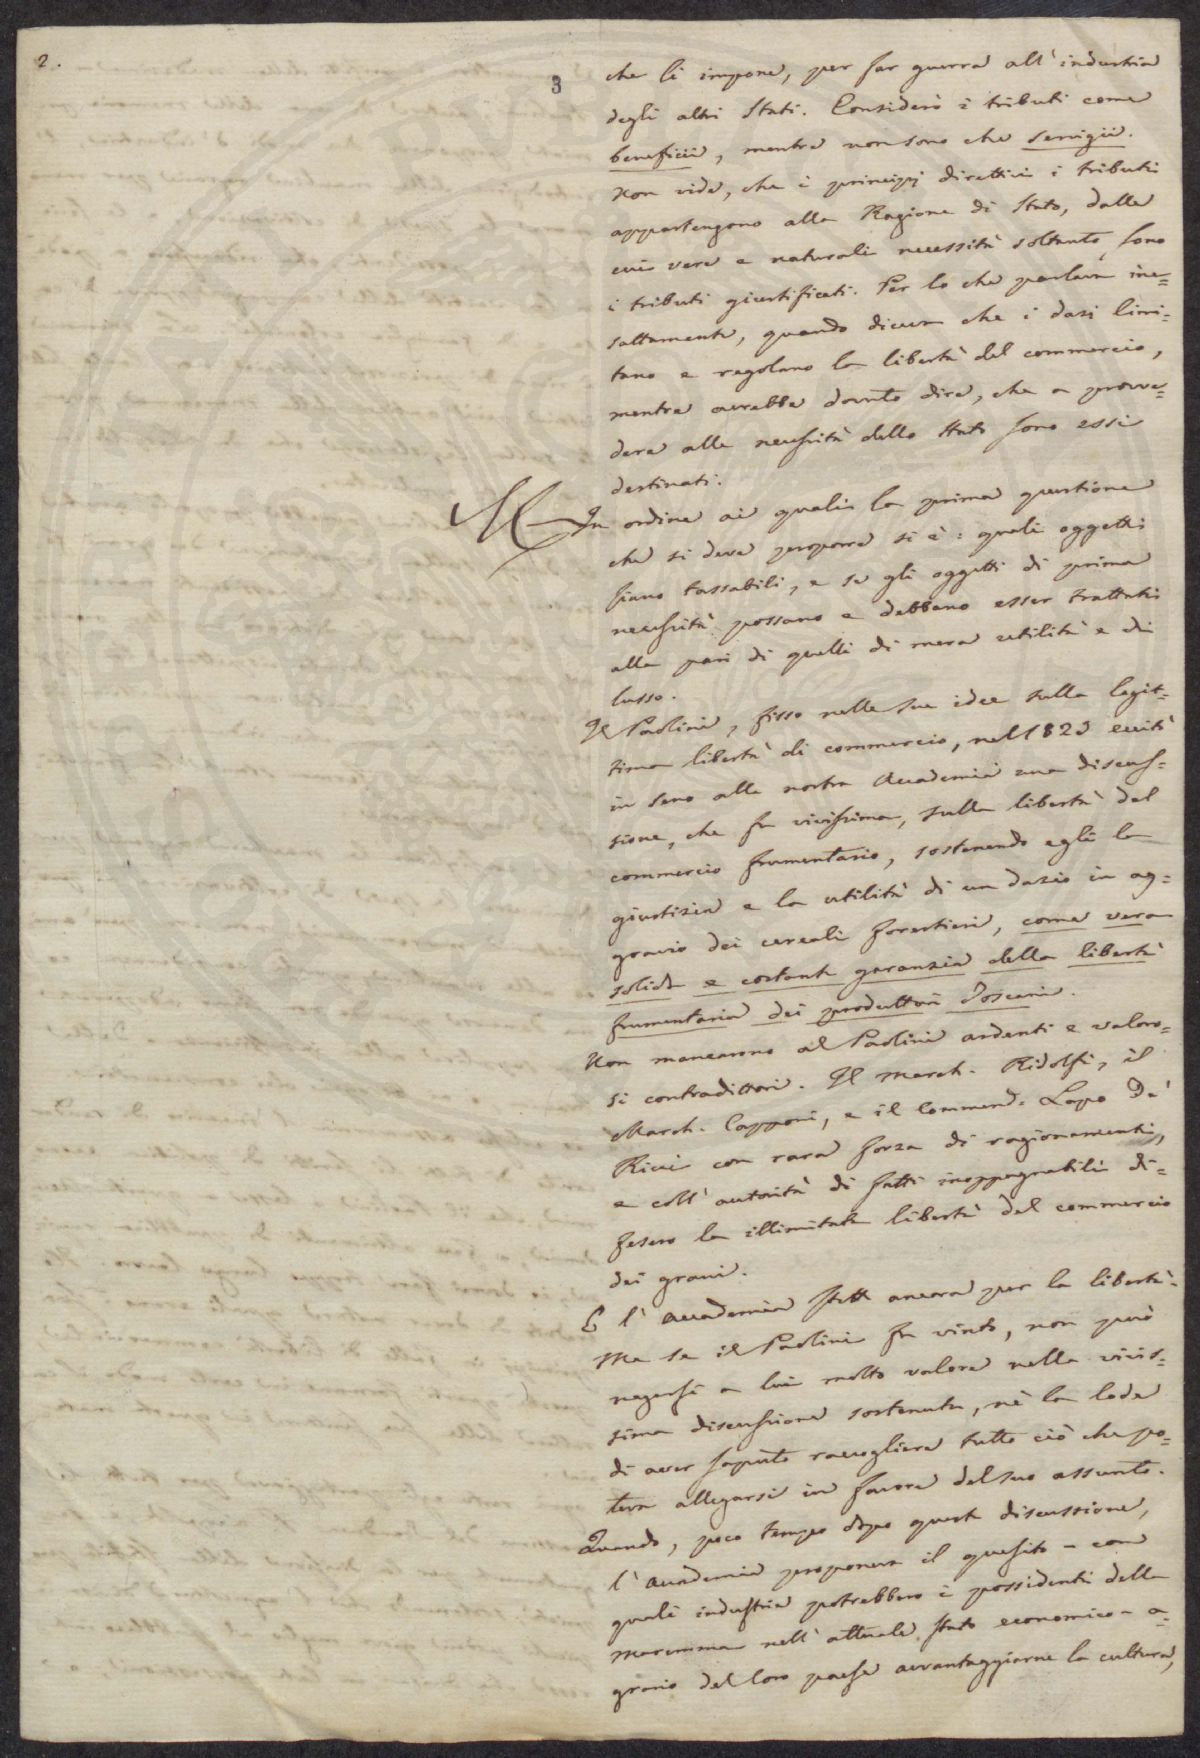 2.
3
che li impone, per far guerra all'industria
degli altri Stati. Considerò i tributi come
beneficii, mentre non sono che servigii.
Non vide, che i principj direttivi i tributi
appartengono alla Ragione di Stato, dalle
cui vere e naturali necessità soltanto sono
i tributi giustificati. Per lo che parlava ine=
sattamente, quando diceva che i dazi limi=
tano e regolano la libertà del commercio,
mentre avrebbe dovuto dire, che a provve=
dere alle necessità dello Stato sono essi
destinati.
In ordine ai quali la prima questione
che si deve proporre si è: quali oggetti
siano tassabili, e se gli oggetti di prima
necessità possano e debbano esser trattati
alla pari di quelli di mera utilità e di
lusso.
Il Paolini, fisso nelle sue idee sulla legit=
tima libertà di commercio, nel 1823 eccitò
in seno alla nostra Accademia una discus=
sione, che fu vivissima, sulla libertà del
commercio frumentario, sostenendo egli la
giustizia e la utilità di un dazio in ag=
gravio dei cereali forestieri, come vera
solida e costante garanzia della libertà
frumentaria dei produttori Toscani.
Non mancarono al Paolini ardenti e valoro=
si contradittori. Il March. Ridolfi, il
March. Capponi, e il Commend. Lapo De'
Ricci con rara forza di ragionamenti,
e coll'autorità di fatti inoppugnabili di=
fesero la illimitata libertà del commercio
dei grani.
E l'Accademia stette ancora per la libertà.
Ma se il Paolini fu vinto, non però
negarsi a lui molto valore nella vivis=
sima discussione sostenuta, nè la lode
di aver saputo raccogliere tutto ciò che po=
teva allegarsi in favore del suo assunto.
Quando, poco tempo dopo questa discussione,
l'Accademia proponeva il quesito - con
quali industrie potrebbero i possidenti della
maremma nell'attuale stato economico-a=
grario del loro paese avvantaggiarne la cultura,